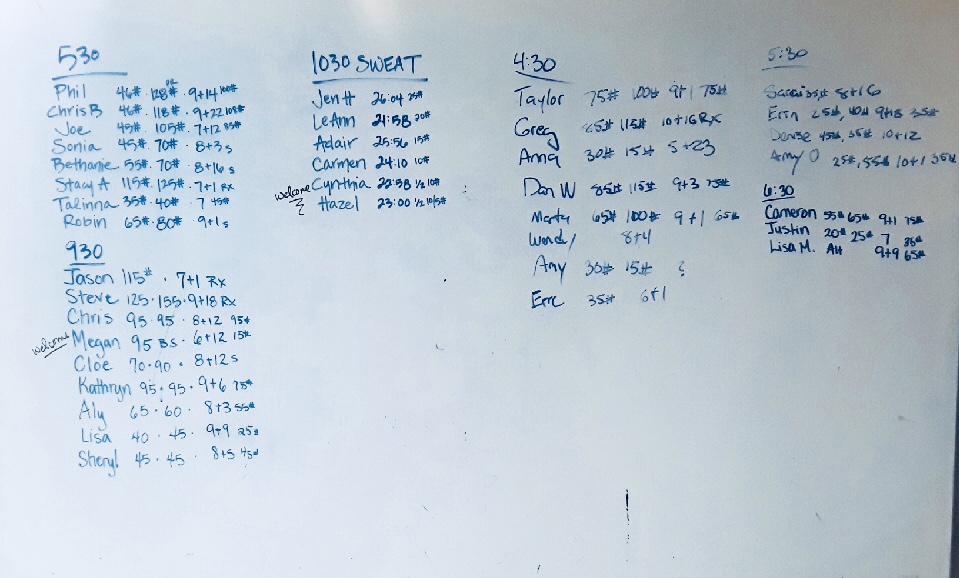 530
Phil 46# · 128# · 9+14 100#
Chris B 46# · 118# · 9+22 108#
Joe 45# · 105# · 7+12 85#
Sonia 45# · 70# · 8+3 s
Bethanie 55# · 70# · 8+16 s
Stacy A 115# · 125# · 7+1 Rx
Talinna 35# · 40# · 7 45#
Robin 65# · 80# · 9+1 s
930
Jason 115# · 7+1 Rx
Steve 125 · 155 · 9+18 Rx
Chris 95 · 95 · 8+12 95#
welcome Megan 95 BS · 6+12 15#
Cloe 70 · 90 · 8+12 s
Kathryn 95 · 95 · 9+6 75#
Aly 65 · 60 · 8+3 55#
Lisa 40 · 45 · 9+9 25#
Sheryl 45 · 45 · 8+5 45#
1030 SWEAT
Jen H 26:04 25#
LeAnn 21:58 20#
Adair 25:56 15#
Carmen 24:10 10#
welcome Cynthia 22:58 1/2 10#
Hazel 23:00 1/2 10/5#
4:30
Taylor 75# 100# 9+1 75#
Greg 115# 10+16 Rx
Anna 30# 15# 5+23
Dan W 85# 115# 9+3 75#
Marty 65# 100# 9+1 65#
Wendy 8+4
Amy 30# 15# ?
Eric 35# 6+1
5:30
8+16
Erin 25#, 40# 9+18 35#
Denise 45#, 35# 10+12
Amy O 25#, 55# 10+1 35#
6:30
Cameron 55# 65# 9+1 75#
Justin 20# 25# 7 35#
Lisa M. 9+9 65#